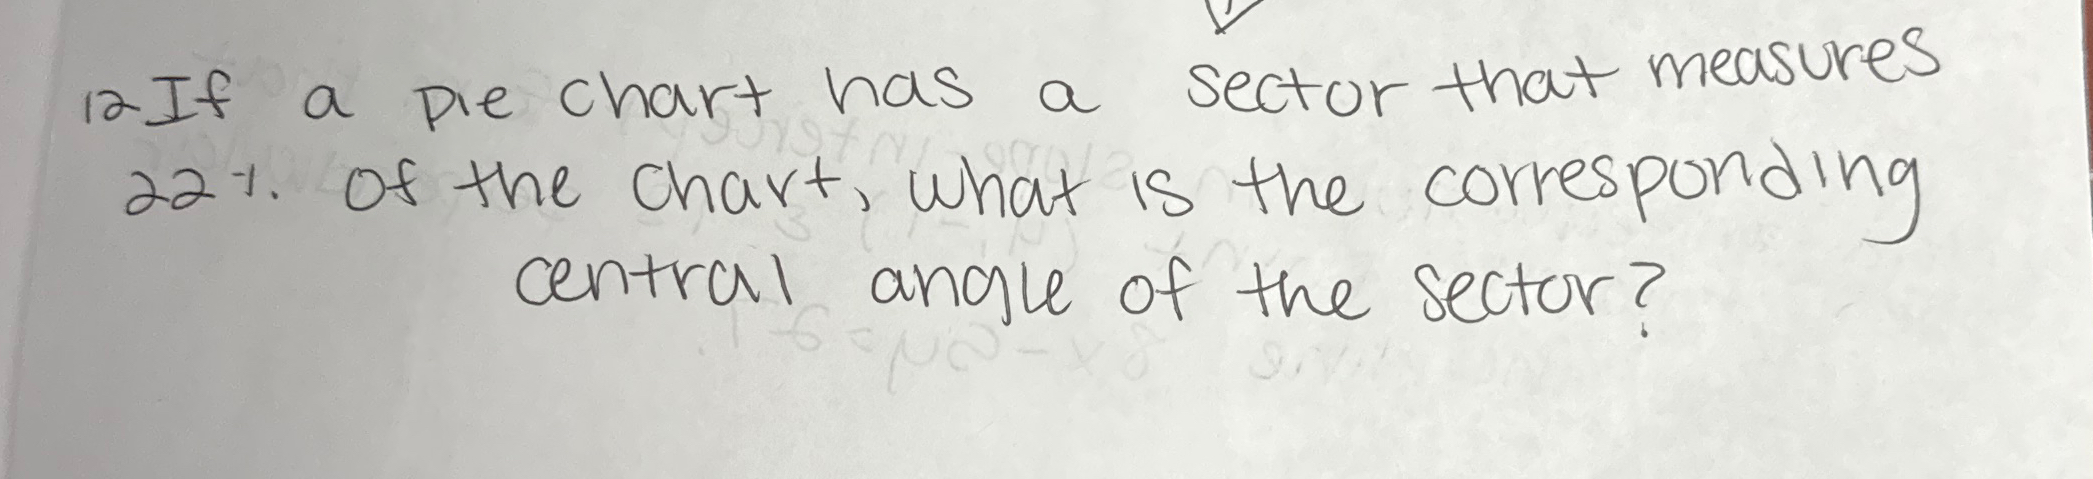 12 If a pie chart has a sector that measures
22%. of the chart, what is the corresponding
central angle of the sector?